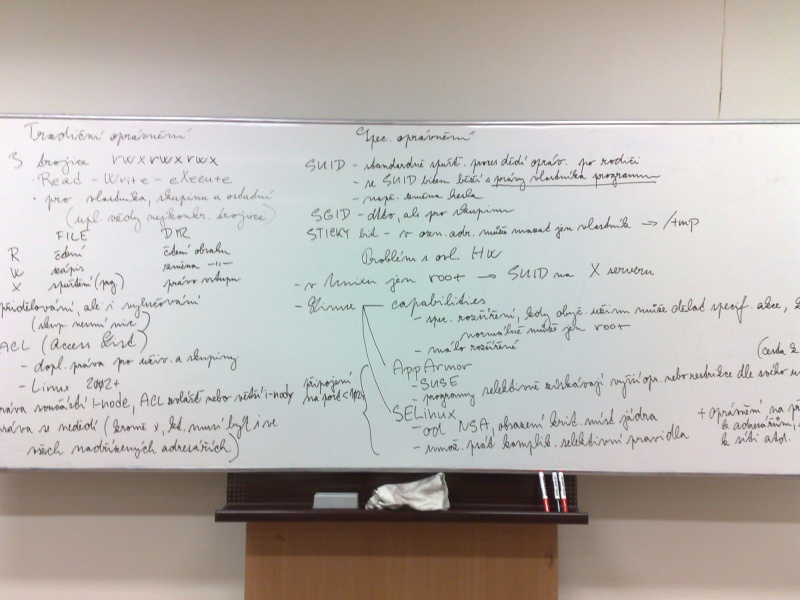 Tradiční oprávnění
3 trojice rwxrwxrwx
· Read - Write - eXecute
· pro vlastníka, skupinu a ostatní
(upl. vždy nejkonkr. trojice)
FILE DIR
R čtení čtení obsahu
W zápis změna -"-
X spuštění (prg) právo vstupu
přidělování, ale i vylučování
(skup. nesmí nic)
ACL (Access List)
- dopl. práva pro uživ. a skupiny
- Linux 2002+
práva součástí i-node, ACL zvlášť nebo větší i-node
práva se nedědí (kromě x, kt. musí být i ve
všech nadřízených adresářích)
Spec. oprávnění
SUID - standardně spušt. proces dědí opráv. po rodiči
- se SUID bitem běží s právy vlastníka programu
- např. změna hesla
SGID - dtto, ale pro skupinu
STICKY bit - v ozn. adr. může mazat jen vlastník → /tmp
Problém s ovl. HW
- v Unixu jen root → SUID na X serveru
- Linux
capabilities
- spec. rozšíření, kdy obyč. uživ. může dělat specif. akce,
normálně může jen root
- málo rozšířené
připojení
na port <1024
AppArmor
- SUSE
- programy selektivně získávají vyšší opr. nebo restrikce dle
(cesta k
SELinux
- od NSA, obsazení krit. míst jádra
- umož. psát komplik. selektivní pravidla
+ oprávnění na
k adresářům,
k síti atd.